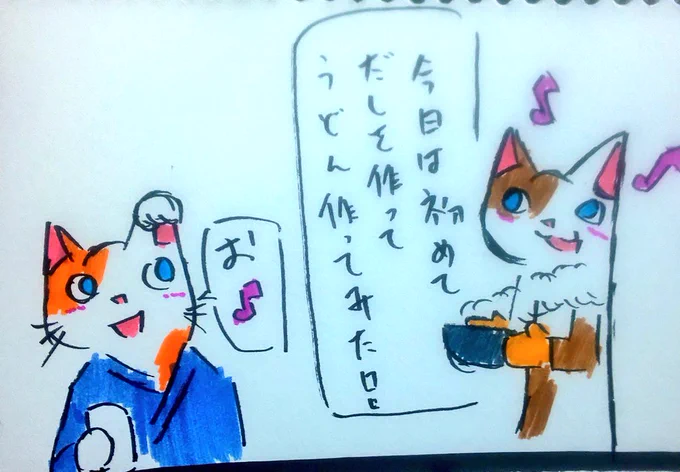 今日は初めて
だしを作って
うどん作ってみた
お♪